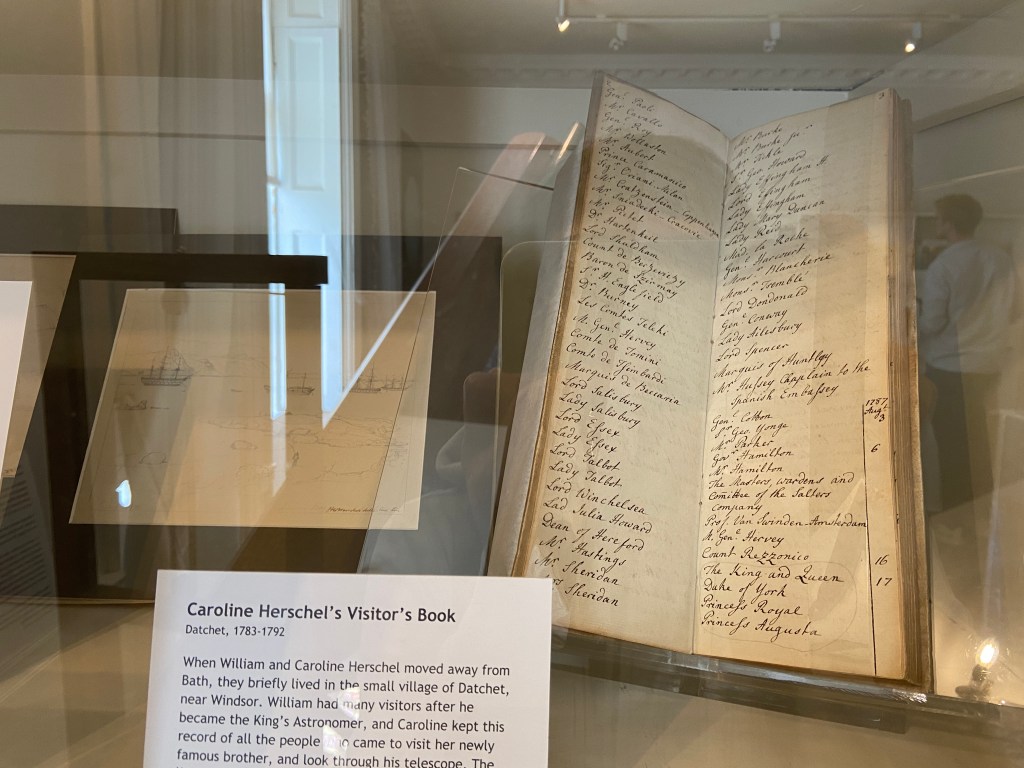 Gen.l Paoli
Mr Cavallo
Gen.l Roy
Mr Rollaston
Mr Aubert
Prince Caramanico
Sig.r Oriani Milan
Mr
Mr
Mr Pictet
Dr Hartenkeil
Lord
Count de
Baron de
S.r H. Englefield
Dr Burney
Les Comtes Teleki
M. Gen.l Hervey
Comte de
Comte de
Marquis de Beccaria
Lord Salisbury
Lady Salisbury
Lord Essex
Lady Essex
Lord Talbot
Lady Talbot
Lord Winchelsea
Lad Julia Howard
Dean of Hereford
Mr Hastings
Mr Sheridan
rs Sheridan
3
Mr Burke
Mr Burke ju.r
Mr Tickle
Sr Geo. Howard
Lady Effingham H
Lord Effingham
Lady Effingham
Lady Mary Duncan
Lady Reid
Mad. la Roche
Gen.l Harcourt
Mons.r Blancherie
Mons.r Tremble
Lord Dondonald
Gen.l Conway
Lady Ailesbury
Lord Spencer
Marquis of Huntley
Mr Hussey Chaplain to the
Spanish Embassey
1787
Aug.t
Gen.l Cotton 3
Sr Geo. Yonge
Mr Parker
Gov.r Hamilton 6
Mr Hamilton
The Masters, wardens and
Comittee of the Salters
Company
Prof. Van Swinden Amsterdam
M. Gen.l Hervey
Count Rezzonico 16
The King and Queen 17
Duke of York
Princess Royal
Princess Augusta
Caroline Herschel's Visitor's Book
Datchet, 1783-1792
When William and Caroline Herschel moved away from
Bath, they briefly lived in the small village of Datchet,
near Windsor. William had many visitors after he
became the King's Astronomer, and Caroline kept this
record of all the people who came to visit her newly
famous brother, and look through his telescope. The